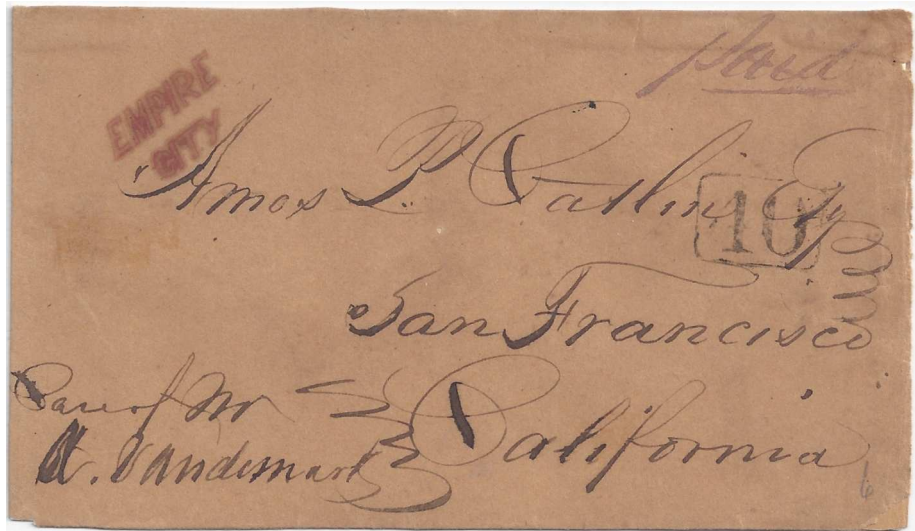 paid
EMPIRE
CITY
Amos P. Catlin Esq
10
San Francisco
California
Care of Mr
A. Vandemark
6